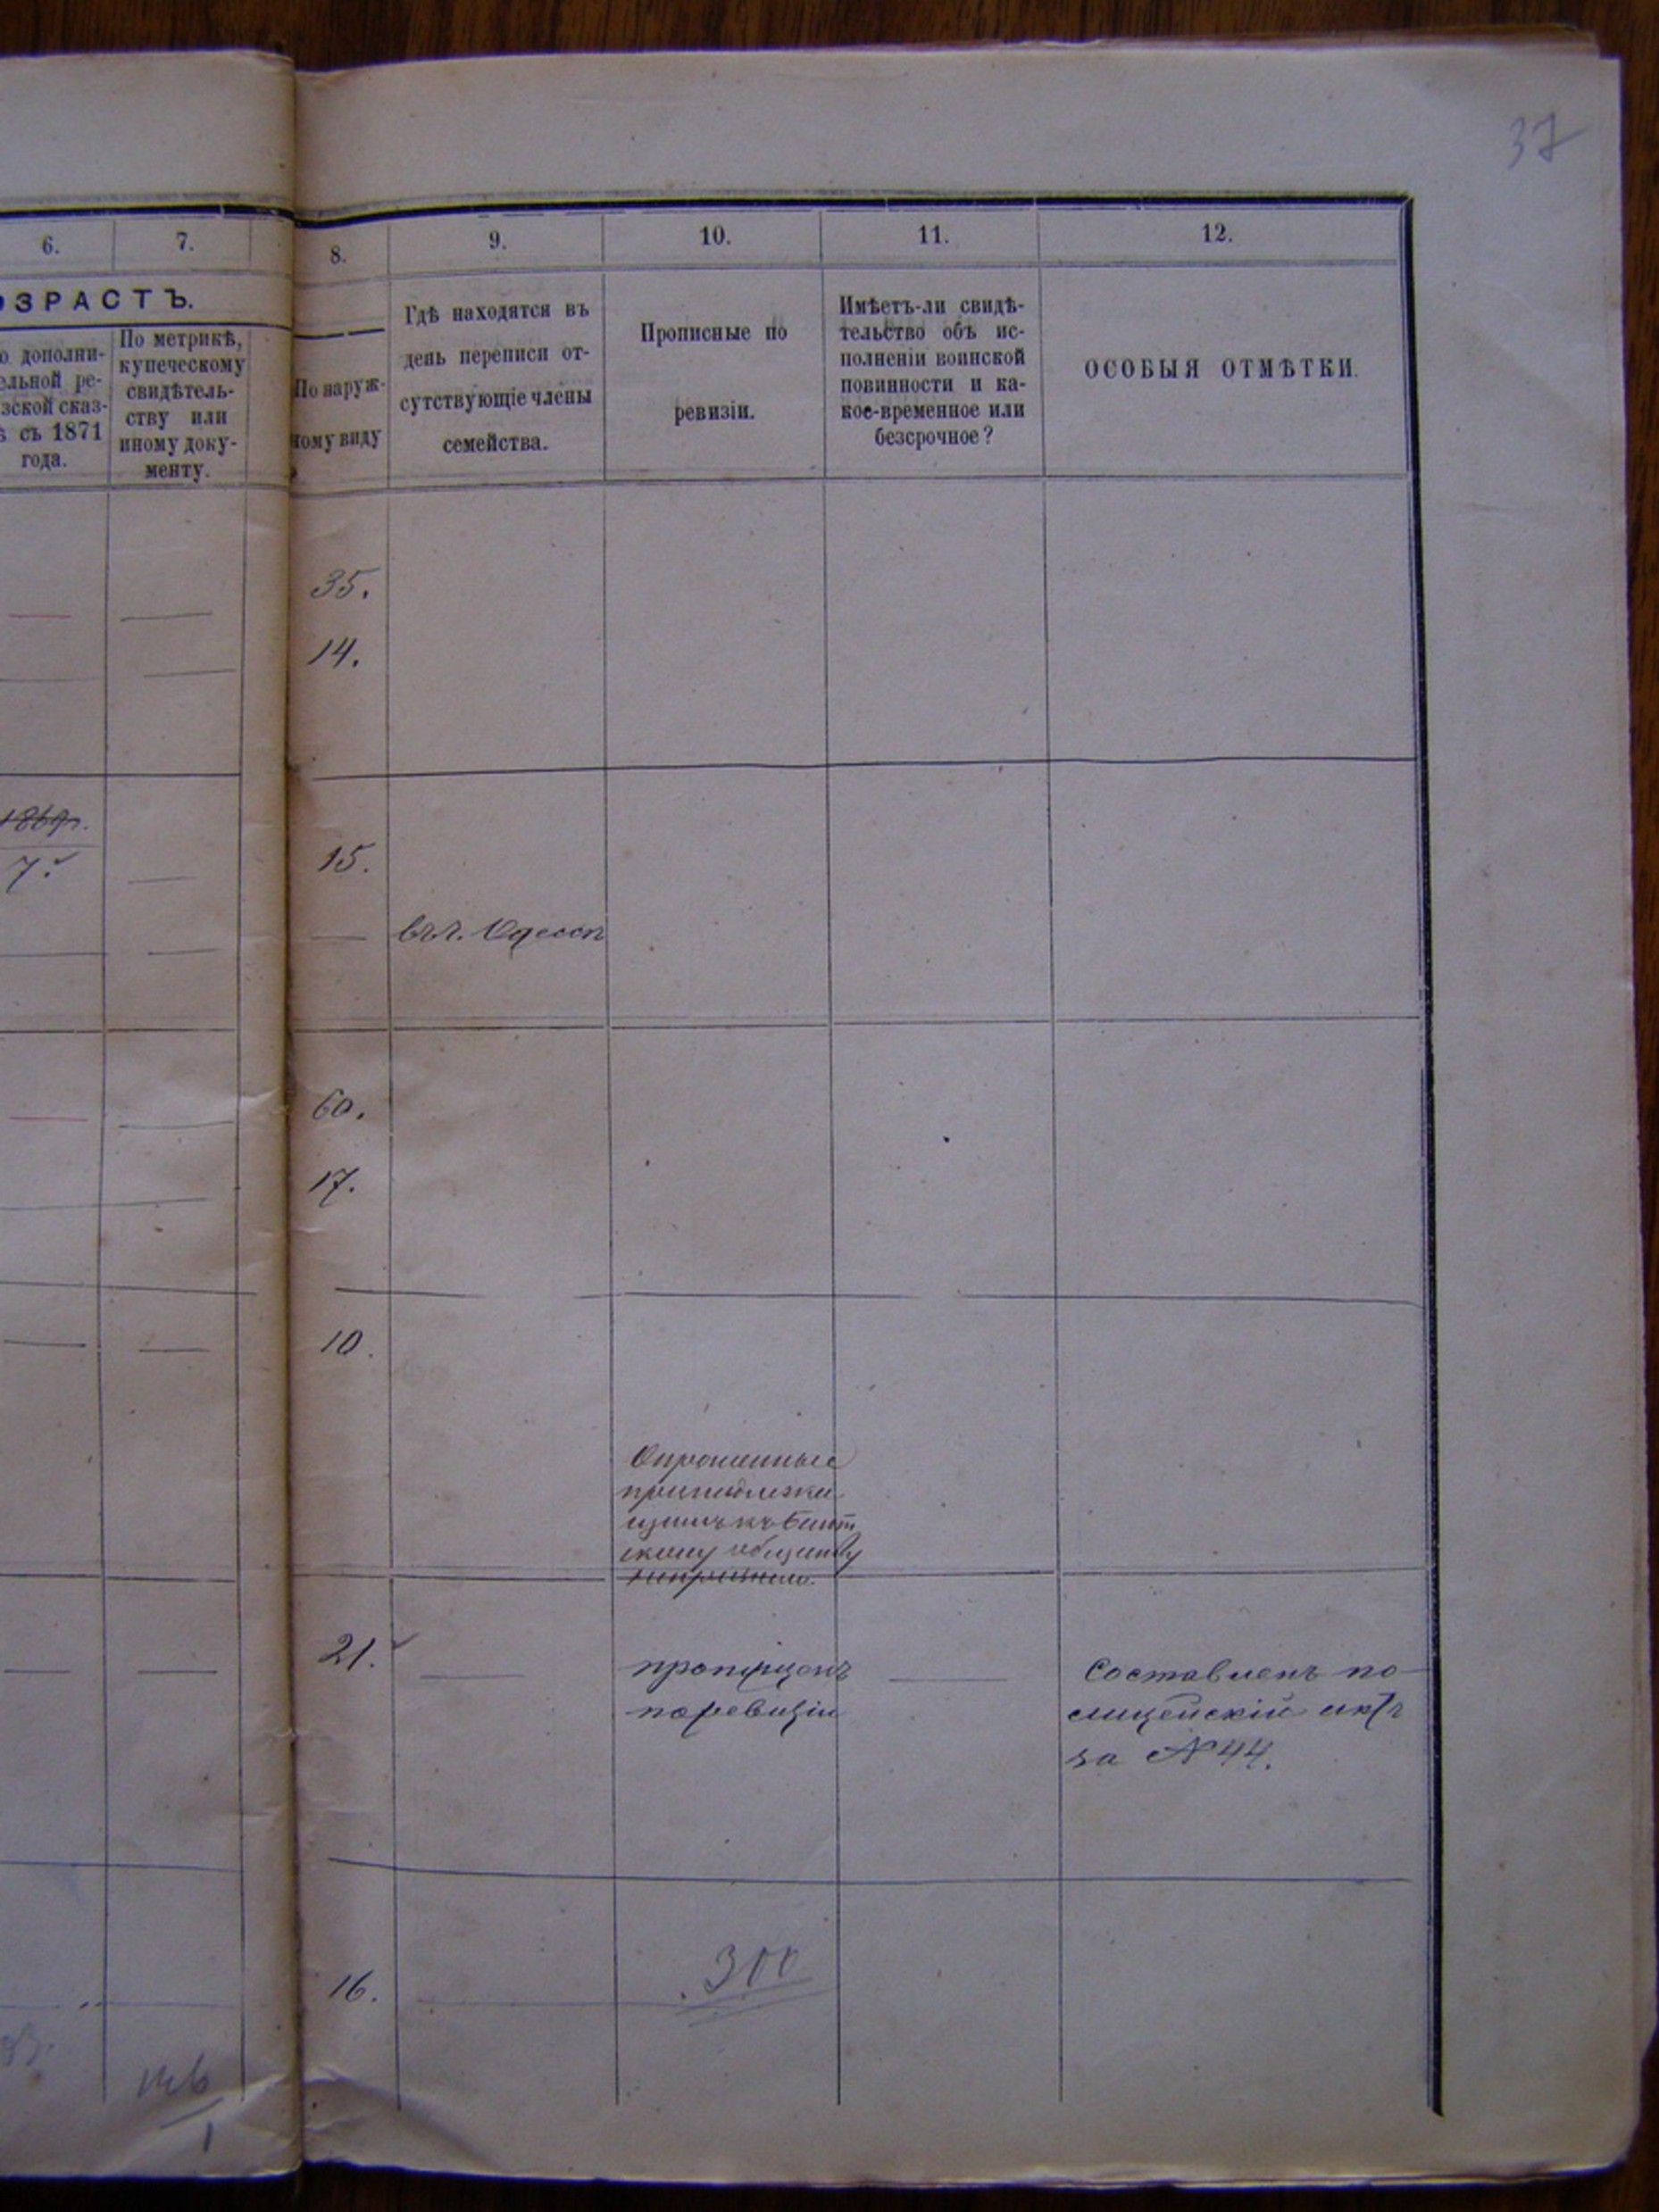 37
6. 7. 8. 9. 10. 11. 12.
ОЗРАСТЪ.
о дополни-
ельной ре-
зской сказ-
ѣ съ 1871
года.
По метрикѣ,
купеческому
свидѣтель-
ству или
иному доку-
менту.
По наруж-
ному виду
Гдѣ находятся въ
день переписи от-
сутствующіе члены
семейства.
Прописные по
ревизіи.
Имѣетъ-ли свидѣ-
тельство объ ис-
полненіи воинской
повинности и ка-
кое-временное или
безсрочное?
ОСОБЫЯ ОТМѢТКИ.
35.
14.
1869г.
7.
15.
въ г. Одессѣ
60.
17.
10.
скому обществу
21.
пропущенъ
по ревизіи
Составленъ по-
лицейскій актъ
за № 44.
300
16.